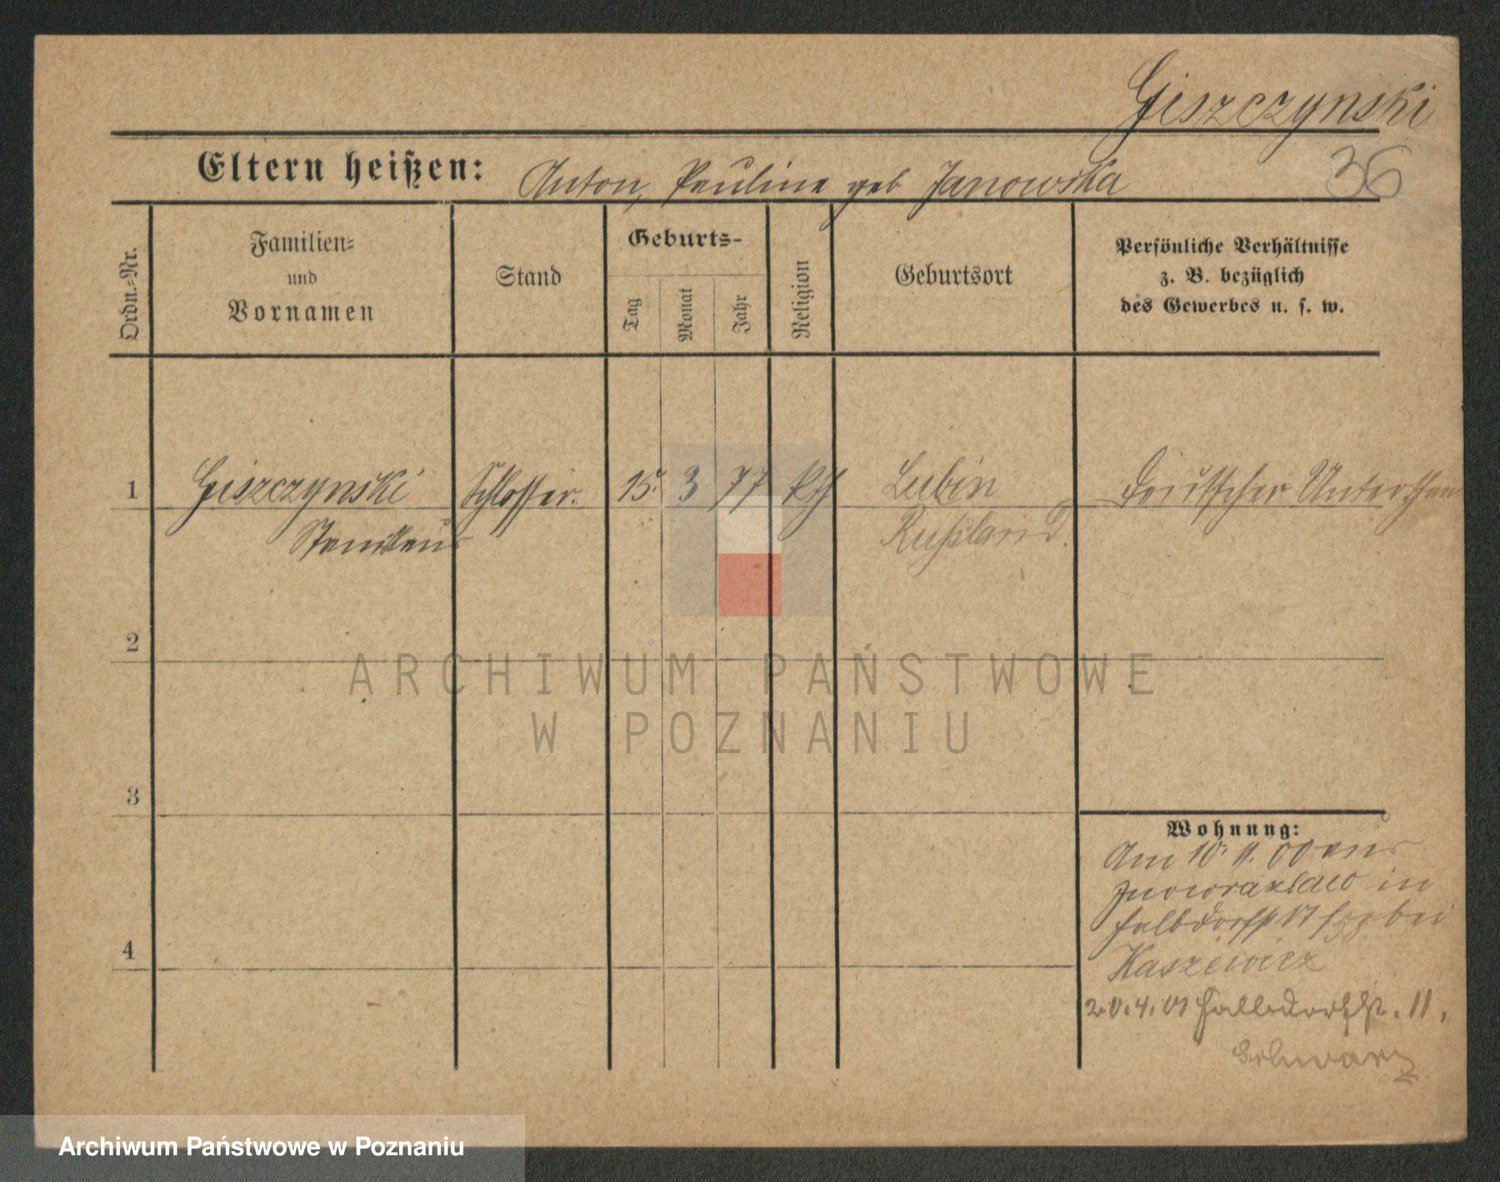 Giszczynski
36
Eltern heißen: Anton, Pauline geb Janowska
Ordn.-Nr.
Familien-
und
Vornamen
Stand
Geburts-
Tag
Monat
Jahr
Religion
Geburtsort
Persönliche Verhältnisse
z. B. bezüglich
des Gewerbes u. s. w.
1 Giszczynski Schlosser. 15. 3 77 Deutscher Unterthan
Lubin
Rußland.
2
3
4
Wohnung:
Am 10. 11. 00 aus
Inowrazlaw in
bei
Kaszewicz
20.4.01 11.
Schwarz
ARCHIWUM PAŃSTWOWE
W POZNANIU
Archiwum Państwowe w Poznaniu